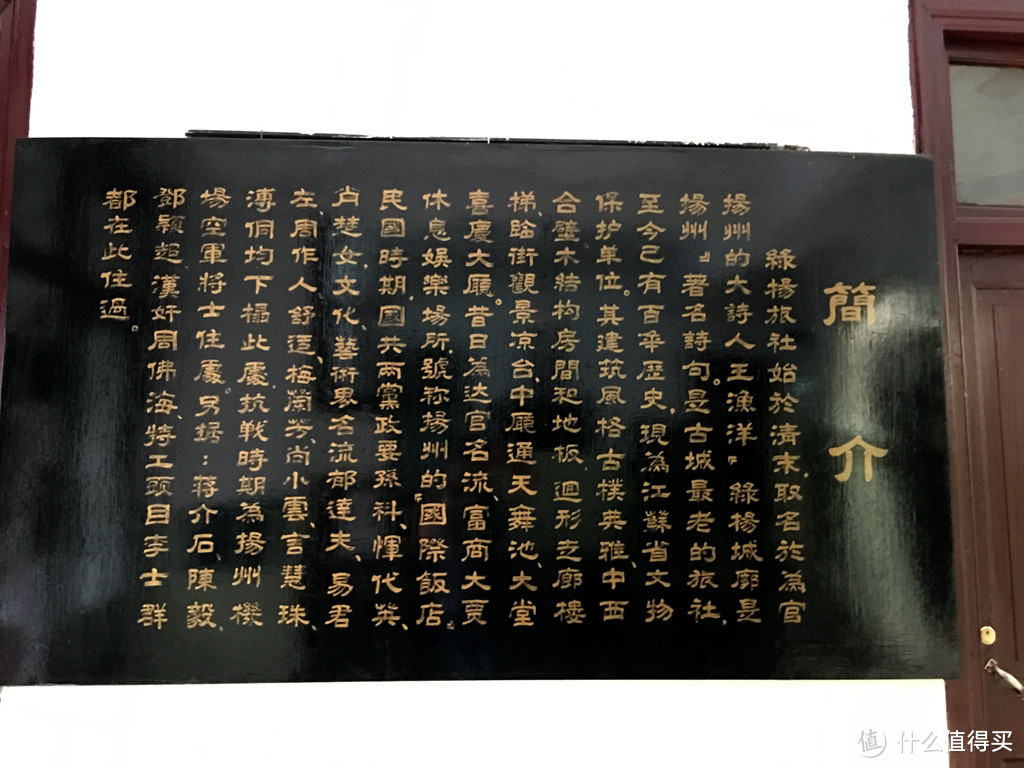 簡介
綠楊旅社始於清末,取名於為官
揚州的大詩人王漁洋『綠楊城廓是
揚州』著名詩句。是古城最老的旅社,
至今已有百年歷史,現為江蘇省文物
保护单位。其建筑風格古樸英雅、中西
合璧木結构房間和地板、迴形走廊樓
梯、臨街觀景凉台、中廳通天舞池、大堂
喜慶大廳。昔日為达官名流、富商大贾
休息娛樂場所,號称揚州的『國際飯店』。
民國時期,國共兩黨政要孫科、惲代英、
肖楚女,文化、藝術界名流郁達夫、易君
左、周作人、舒湮、梅蘭芳、尚小雲、言慧珠、
溥侗均下榻此處,抗戰時期為揚州機
場空軍將士住處。另據:蒋介石、陳毅、
鄧穎超、漢奸周佛海、特工頭目李士群
都在此住過。
值 什么值得买